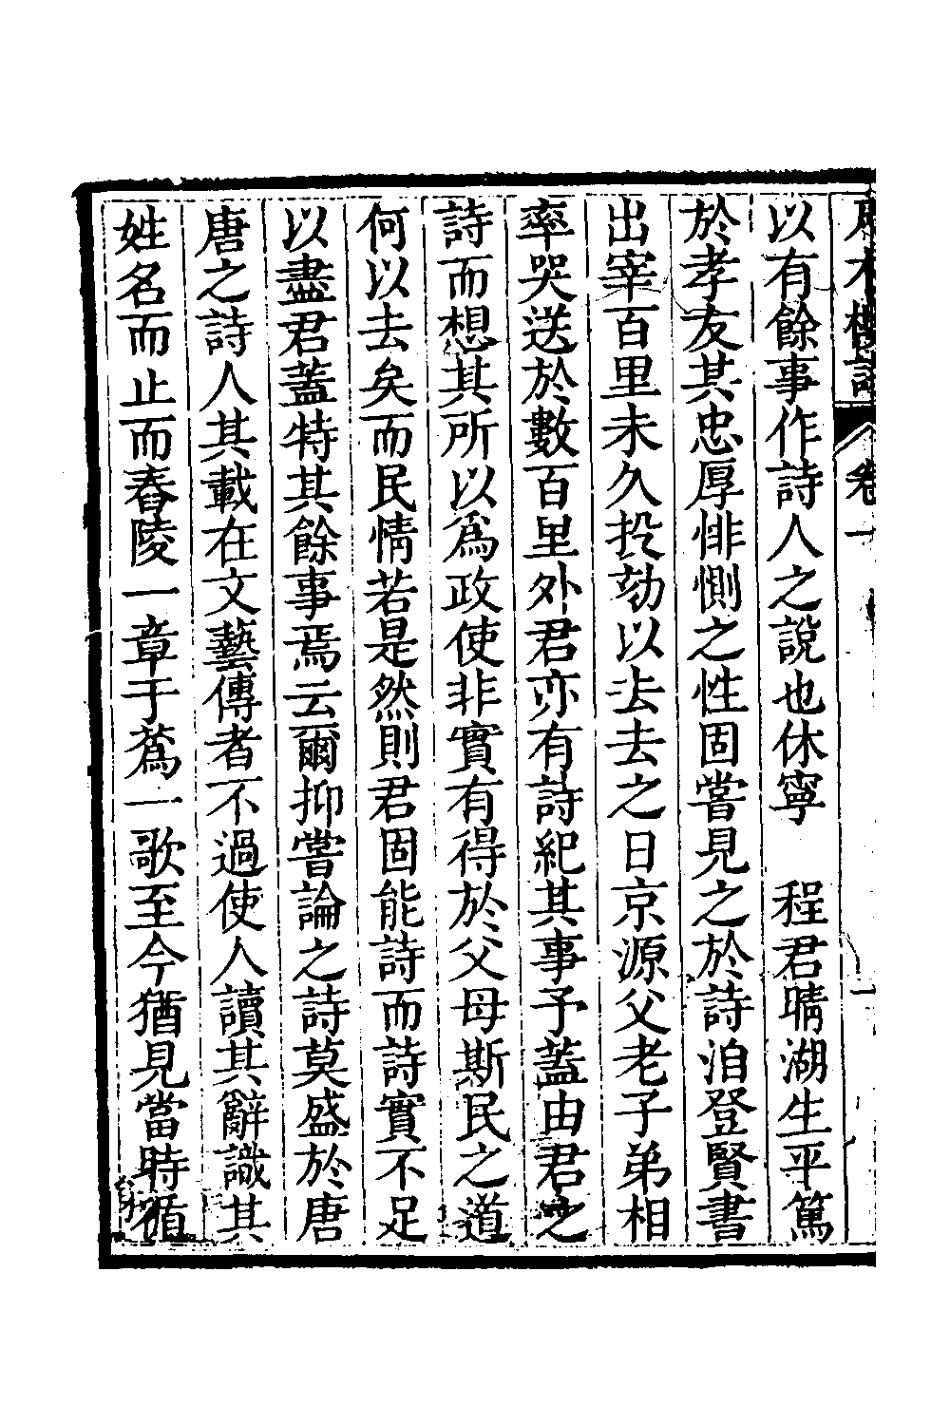 卷一
以有餘事作詩人之說也休寧　程君晴湖生平篤
於孝友其忠厚悱惻之性固嘗見之於詩洎登賢書
出宰百里未久投劾以去去之日京源父老子弟相
率哭送於數百里外君亦有詩紀其事予蓋由君之
詩而想其所以爲政使非實有得於父母斯民之道
何以去矣而民情若是然則君固能詩而詩實不足
以盡君蓋特其餘事焉云爾抑嘗論之詩莫盛於唐
唐之詩人其載在文藝傳者不過使人讀其辭識其
姓名而止而舂陵一章于蔿一歌至今猶見當時循